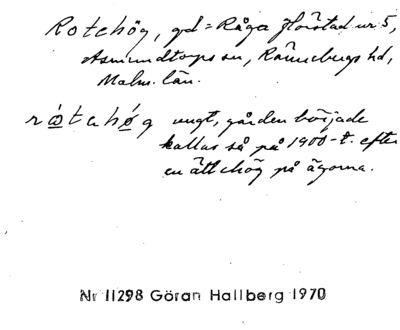 Rotehög, gd = Råga Hörstad nr 5,
Asmundtorps sn, Rönnebergs hd,
Malm. län.
ró̱tehǿ̱g ungt, gården började
kallas så på 1900-t. efter
en ättehög på ägorna.
Nr 11298 Göran Hallberg 1970